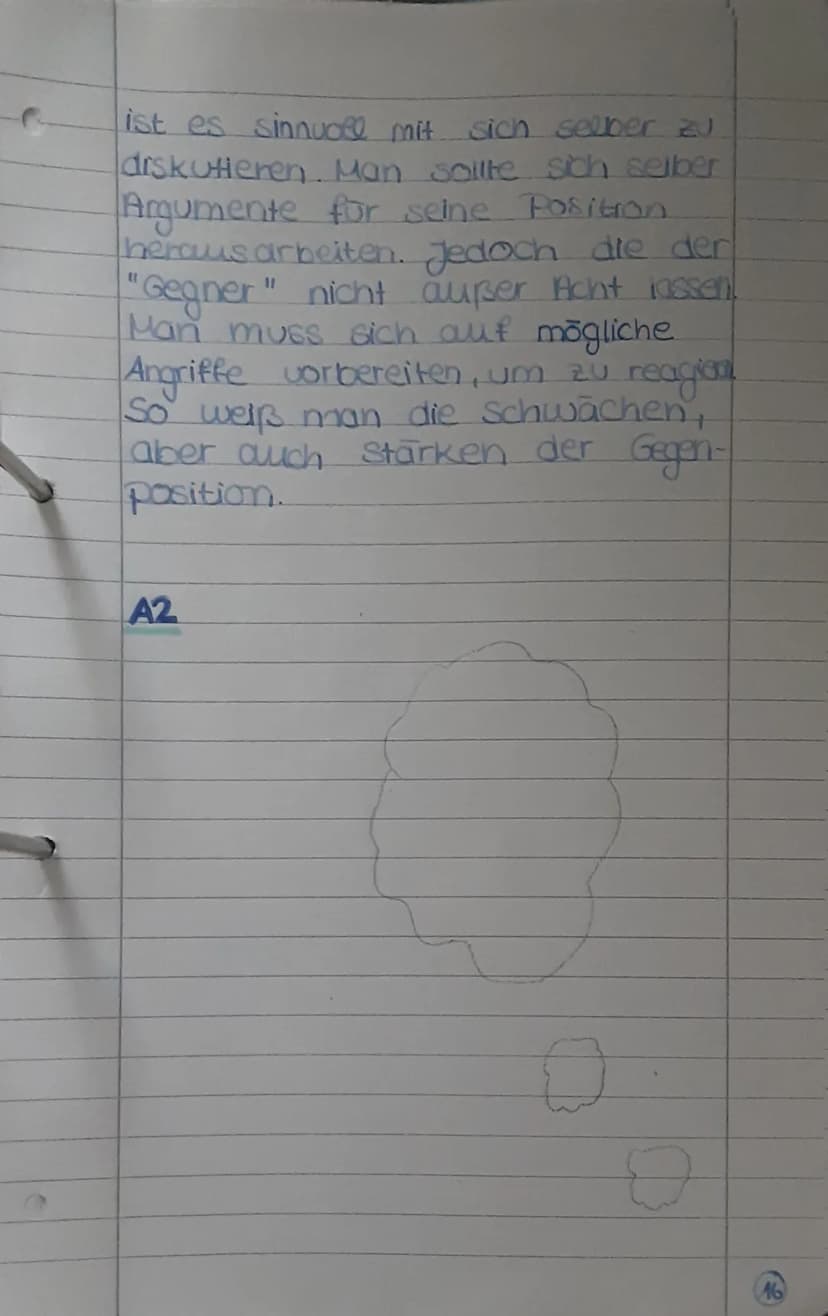 ist es sinnvoll mit sich selber zu
diskutieren. Man sollte sich selber
Argumente für seine Position
herausarbeiten. Jedoch die der
"Gegner" nicht außer Acht lassen
Man muss sich auf mögliche
Angriffe vorbereiten, um zu
So weiß man die Schwächen,
aber auch Stärken der Gegen-
position.
A2
16